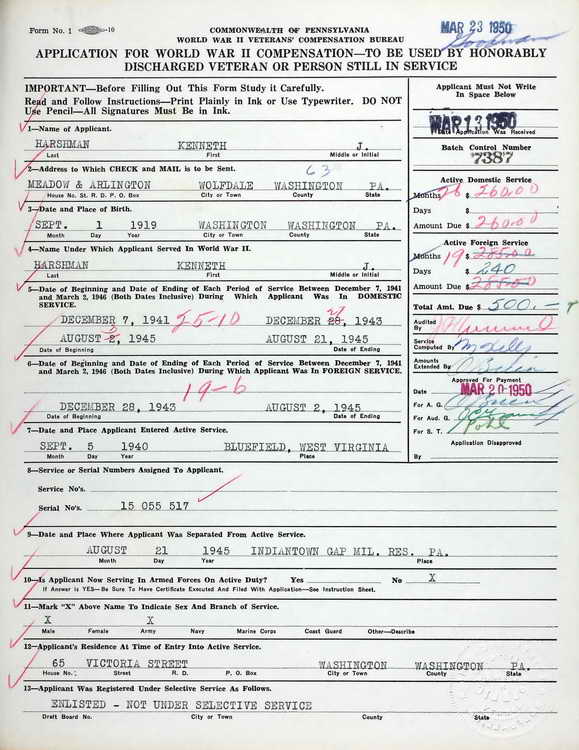 Form No. 1 -10
COMMONWEALTH OF PENNSYLVANIA
WORLD WAR II VETERANS' COMPENSATION BUREAU
MAR 23 1950
APPLICATION FOR WORLD WAR II COMPENSATION—TO BE USED BY HONORABLY
DISCHARGED VETERAN OR PERSON STILL IN SERVICE
IMPORTANT—Before Filling Out This Form Study it Carefully.
Read and Follow Instructions—Print Plainly in Ink or Use Typewriter. DO NOT
Use Pencil—All Signatures Must Be in Ink.
1—Name of Applicant.
HARSHMAN KENNETH J.
Last First Middle or Initial
2—Address to Which CHECK and MAIL is to be Sent.
63
MEADOW & ARLINGTON WOLFDALE WASHINGTON PA.
House No. St. R. D. P. O. Box City or Town County State
3—Date and Place of Birth.
SEPT. 1 1919 WASHINGTON WASHINGTON PA.
Month Day Year City or Town County State
4—Name Under Which Applicant Served In World War II.
HARSHMAN KENNETH J.
Last First Middle or Initial
5—Date of Beginning and Date of Ending of Each Period of Service Between December 7, 1941
and March 2, 1946 (Both Dates Inclusive) During Which Applicant Was In DOMESTIC
SERVICE.
DECEMBER 7, 1941 25-10 DECEMBER 28, 27 1943
AUGUST 2, 3 1945 AUGUST 21, 1945
Date of Beginning Date of Ending
6—Date of Beginning and Date of Ending of Each Period of Service Between December 7, 1941
and March 2, 1946 (Both Dates Inclusive) During Which Applicant Was In FOREIGN SERVICE.
19-6
DECEMBER 28, 1943 AUGUST 2, 1945
Date of Beginning Date of Ending
7—Date and Place Applicant Entered Active Service.
SEPT. 5 1940 BLUEFIELD, WEST VIRGINIA
Month Day Year Place
8—Service or Serial Numbers Assigned To Applicant.
Service No's.
Serial No's. 15 055 517
9—Date and Place Where Applicant Was Separated From Active Service.
AUGUST 21 1945 INDIANTOWN GAP MIL. RES. PA.
Month Day Year Place
10—Is Applicant Now Serving In Armed Forces On Active Duty? Yes No X
If Answer is YES—Be Sure To Have Certificate Executed And Filed With Application—See Instruction Sheet.
11—Mark "X" Above Name To Indicate Sex And Branch of Service.
X X
Male Female Army Navy Marine Corps Coast Guard Other—Describe
12—Applicant's Residence At Time of Entry Into Active Service.
65 VICTORIA STREET WASHINGTON WASHINGTON PA.
House No. Street R. D. P. O. Box City or Town County State
13—Applicant Was Registered Under Selective Service As Follows.
ENLISTED - NOT UNDER SELECTIVE SERVICE
Draft Board No. City or Town County State
Applicant Must Not Write
In Space Below
MAR 13 1950
Date Application Was Received
Batch Control Number
7387
Active Domestic Service
Months 26 $ 260.00
Days $
Amount Due $ 260.00
Active Foreign Service
Months 19 $ 285.00
Days $ 240
Amount Due $ 285.00
Total Amt. Due $ 500.—
Audited
By
Service
Computed By
Amounts
Extended By
Approved For Payment
Date MAR 20 1950
For A. G.
For Aud. G.
For S. T.
Application Disapproved
By